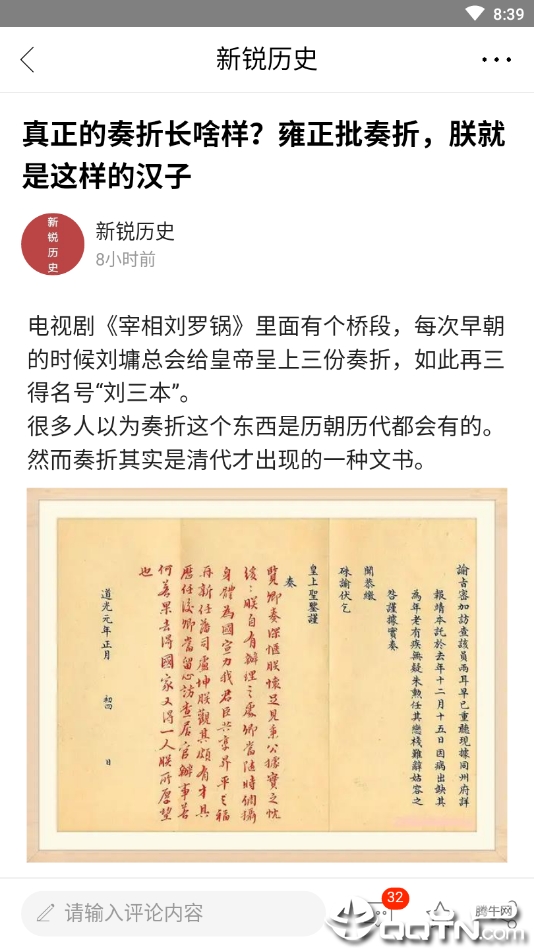 8:39
新锐历史
真正的奏折长啥样？雍正批奏折，朕就
是这样的汉子
新锐历史
新锐历史
8小时前
电视剧《宰相刘罗锅》里面有个桥段，每次早朝
的时候刘墉总会给皇帝呈上三份奏折，如此再三
得名号“刘三本”。
很多人以为奏折这个东西是历朝历代都会有的。
然而奏折其实是清代才出现的一种文书。
諭吉密加訪查該員兩耳早已重聽現據同州府詳
報靖本託於去年十二月十五日因病出缺其
為年老有疾無疑朱勲任其戀棧難辭姑容之
咎謹據實奏
聞恭繳
硃諭伏乞
皇上聖鑒謹
奏
覽卿奏深愜朕懷足見秉公據實之忱
後朕自有辦理之處卿當隨時調攝
身體為國宣力我君臣共享昇平之福
再新任藩司盧坤朕觀其頗有才具
歷任後卿當留心訪查居官辦事若
何若果去得國家又得一人朕所厚望
也
道光元年正月
初四
日
请输入评论内容
32
腾牛网
QQTN.com